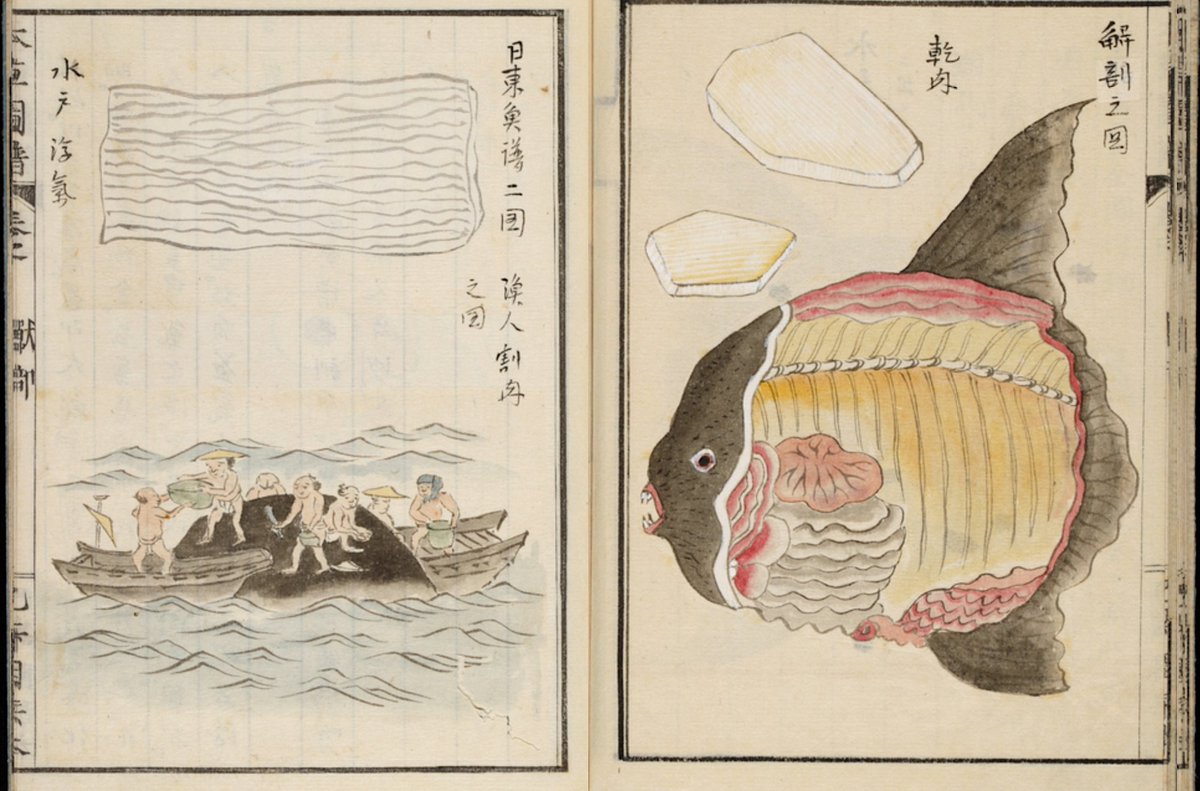 解剖之図
乾肉
日東魚譜二図
漁人割肉
之図
水戸浮氣